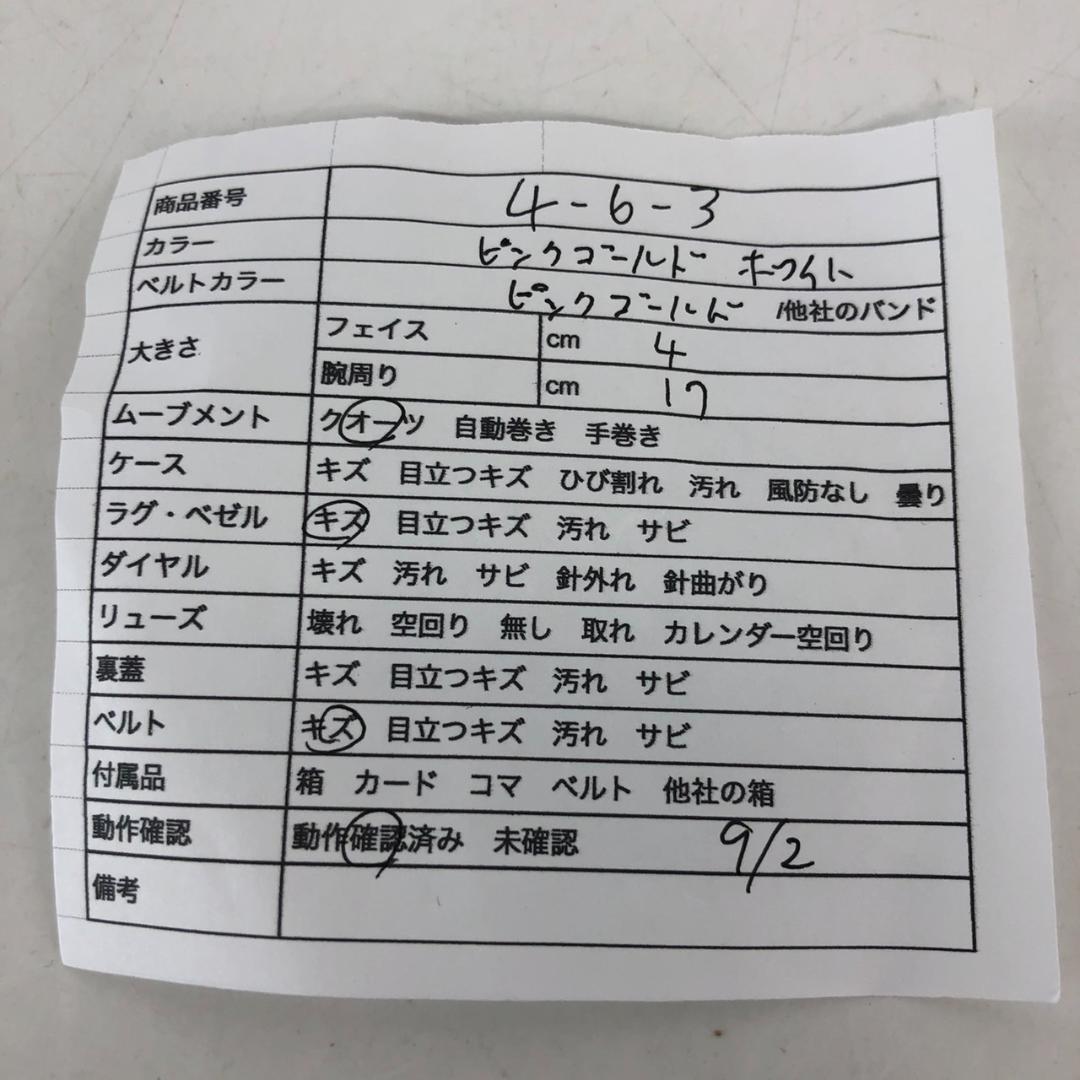 商品番号 4-6-3
カラー ピンクゴールド ホワイト
ベルトカラー ピンクゴールド /他社のバンド
大きさ フェイス cm 4
腕周り cm 17
ムーブメント クオーツ 自動巻き 手巻き
ケース キズ 目立つキズ ひび割れ 汚れ 風防なし 曇り
ラグ・ベゼル キズ 目立つキズ 汚れ サビ
ダイヤル キズ 汚れ サビ 針外れ 針曲がり
リューズ 壊れ 空回り 無し 取れ カレンダー空回り
裏蓋 キズ 目立つキズ 汚れ サビ
ベルト キズ 目立つキズ 汚れ サビ
付属品 箱 カード コマ ベルト 他社の箱
動作確認 動作確認済み 未確認 9/2
備考